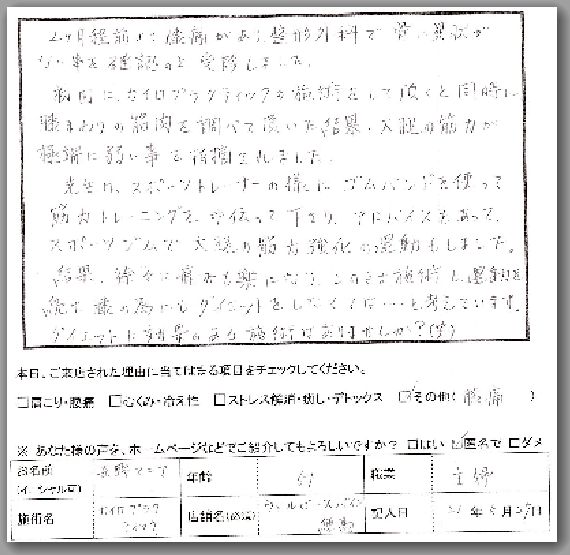 2ヶ月程前より膝痛があり整形外科で骨に異状が
ない事を確認の上受診しました。
初回に、カイロプラクティックの施術をして頂くと同時に
膝まわりの筋肉を調べて頂いた結果、大腿の筋力が
極端に弱い事を指摘されました。
先生は、スポーツトレーナーの様に ゴムバンドを使って
筋力トレーニングを 手伝って下さり、アドバイスもあって、
スポーツジムで 大腿の筋力強化の運動もしました。
結果、徐々に痛みも楽になり、このまま施術と運動を
続け 膝の為にも ダイエットをしなくては・・・と考えています。
ダイエットに効果のある施術はありませんか?
本日、ご来店された理由に当てはまる項目をチェックしてください。
□肩こり・腰痛 □むくみ・冷え性 □ストレス解消・癒し・デトックス ☑その他( 膝痛 )
※ あなた様の声を、ホームページなどでご紹介してもよろしいですか? □はい ☑匿名で □ダメ
お名前
(イニシャル可) 年齢 61 職業 主婦
施術名 カイロプラク
ティック 店舗名(必須) 記入日